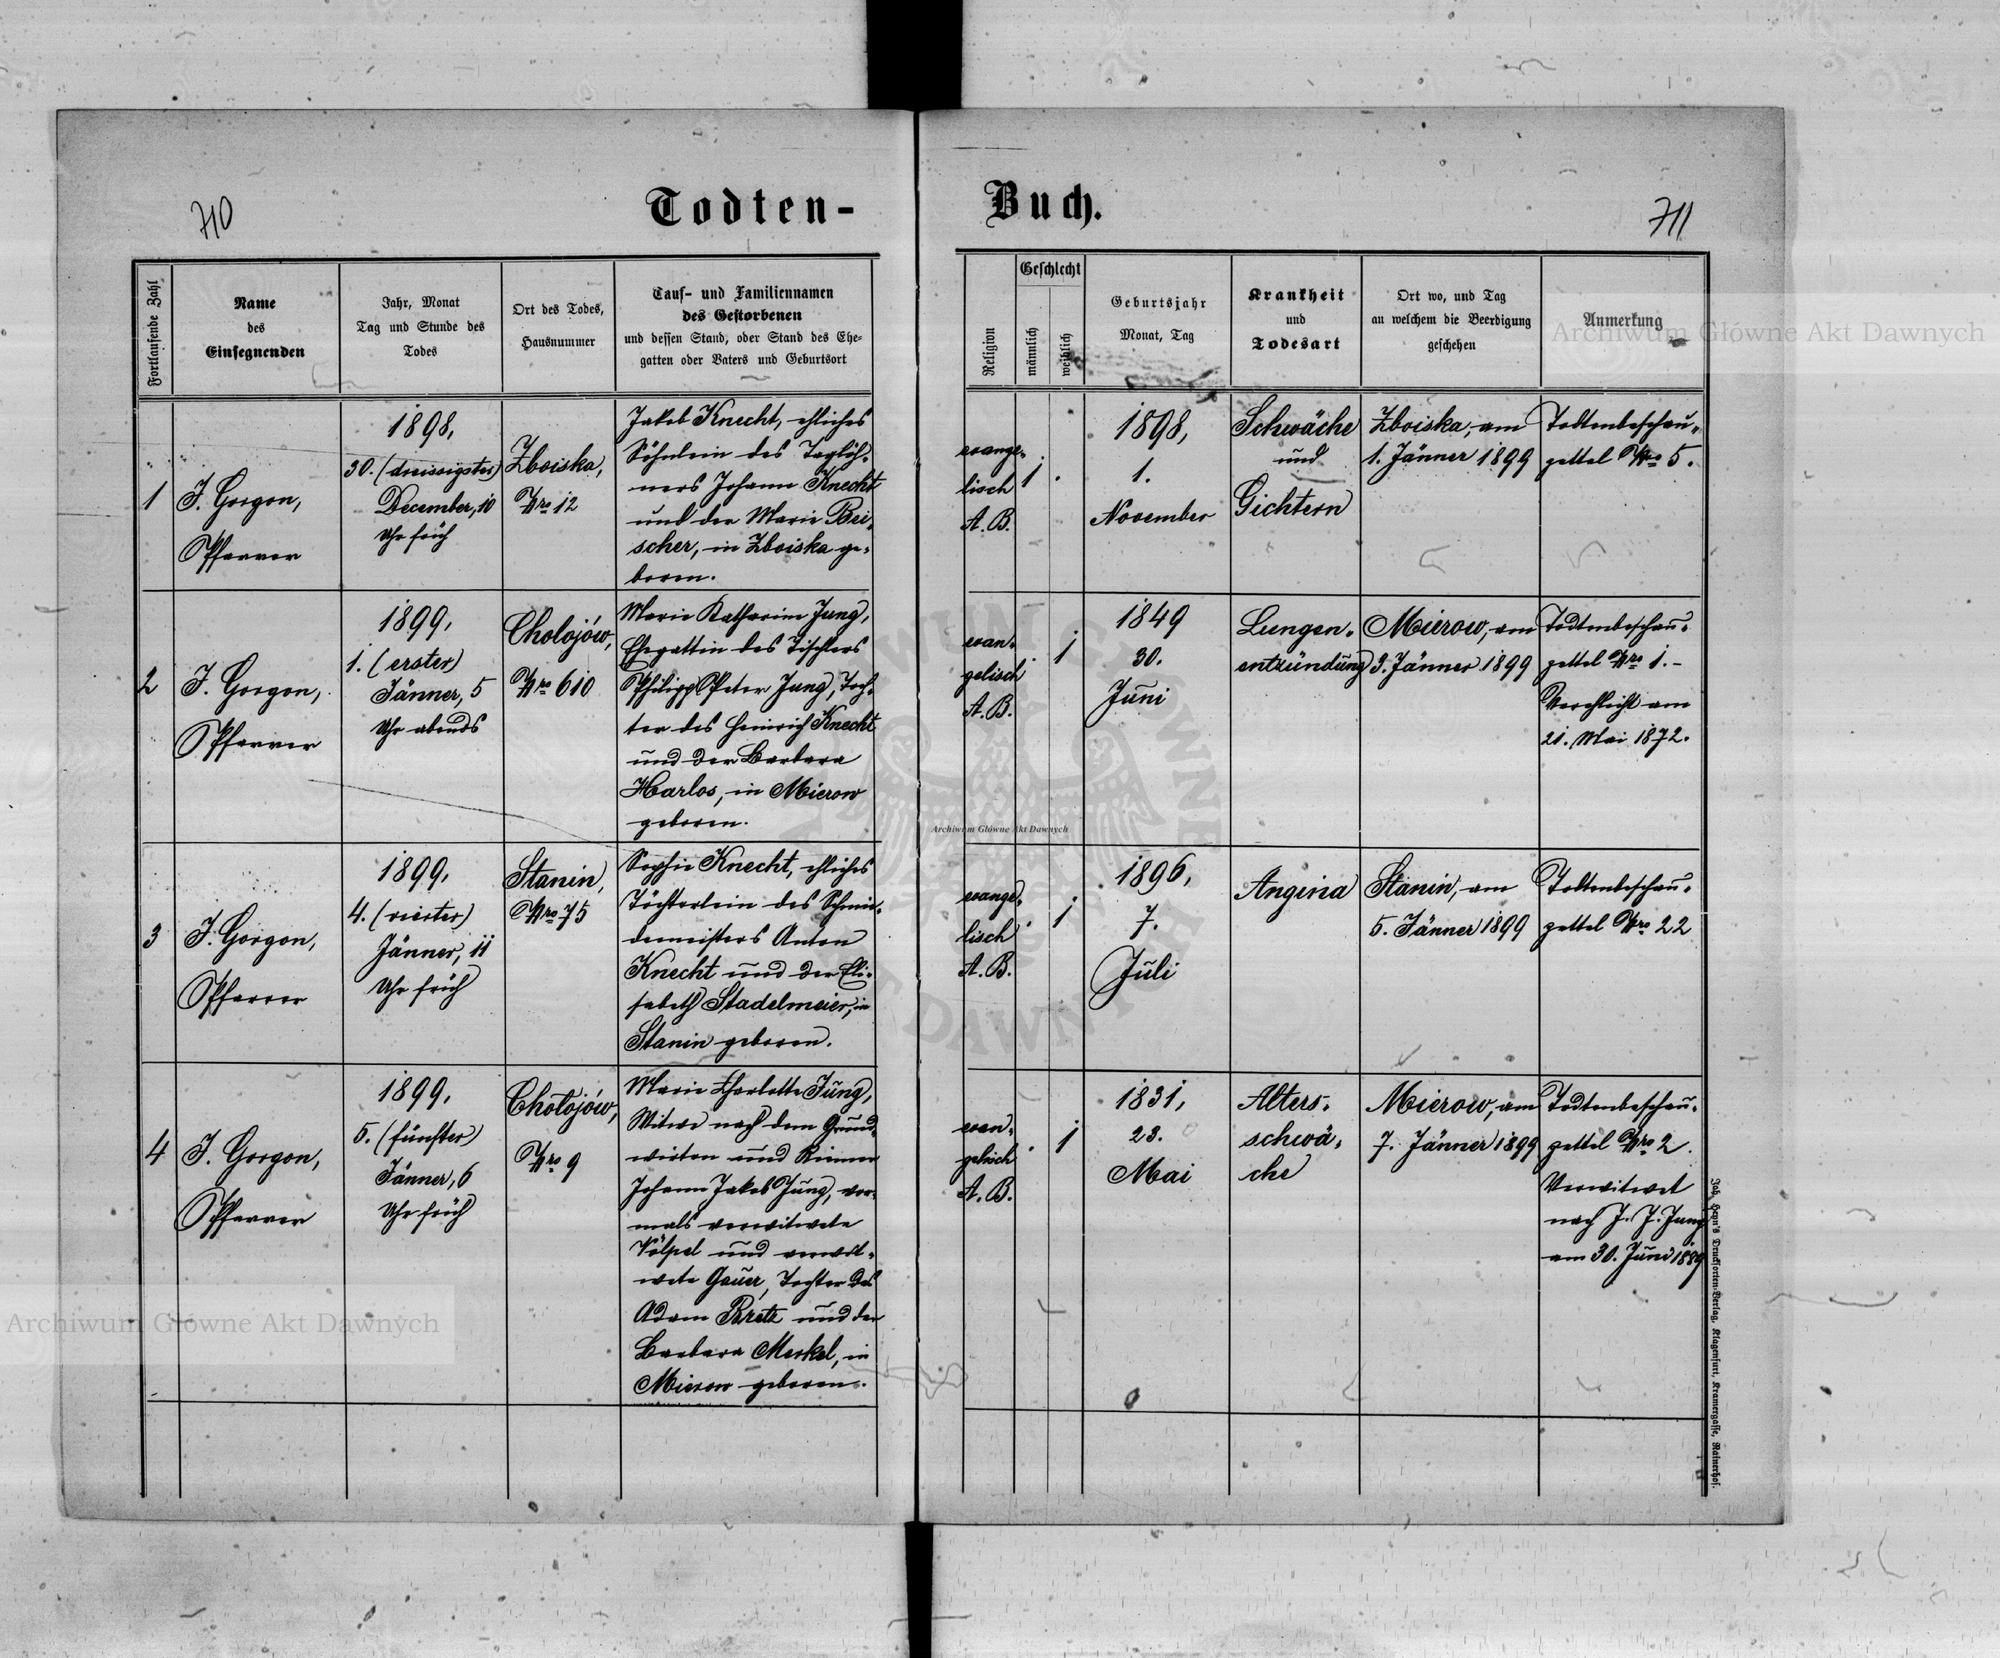 710
Todten-
Buch.
711
Fortlaufende Zahl
Name
des
Einsegnenden
Jahr, Monat
Tag und Stunde des
Todes
Ort des Todes,
Hausnummer
Tauf- und Familiennamen
des Gestorbenen
und dessen Stand, oder Stand des Ehe-
gatten oder Vaters und Geburtsort
Religion
Geschlecht
männlich
weiblich
Geburtsjahr
Monat, Tag
Krankheit
und
Todesart
Ort wo, und Tag
an welchem die Beerdigung
geschehen
Anmerkung
1
J. Gorgon,
Pfarrer
1898,
30. (dreissigster)
December, 10
Uhr früh
Zboiska,
Nro 12
Jakob Knecht, ehliches
Söhnlein des Taglöh-
ners Johann Knecht
und der Marie Bei-
scher, in Zboiska ge-
boren.
evange-
lisch
A. B.
1
.
1898,
1.
November
Schwäche
und
Gichtern
Zboiska, am
1. Jänner 1899
Todtenbeschau-
zettel Nro 5.
2
J. Gorgon,
Pfarrer
1899,
1. (erster)
Jänner, 5
Uhr abends
Cholojów,
Nro 610
Marie Katharine Jung,
Ehegattin des Tischlers
Philipp Peter Jung, Toch-
ter des Heinrich Knecht
und der Barbara
Harlos, in Mierow
geboren.
evan-
gelisch
A. B.
.
1
1849
30.
Juni
Lungen-
entzündung
Mierow, am
3. Jänner 1899
Todtenbeschau-
zettel Nro 1.-
Verehlicht am
21. Mai 1872.
3
J. Gorgon,
Pfarrer
1899,
4. (vierter)
Jänner, 11
Uhr früh
Stanin,
Nro 75
Sophie Knecht, ehliches
Töchterlein des Schmie-
demeisters Anton
Knecht und der Eli-
sabeth Stadelmeier, in
Stanin geboren.
evange-
lisch
A. B.
.
1
1896,
7.
Juli
Angina
Stanin, am
5. Jänner 1899
Todtenbeschau-
zettel Nro 22
4
J. Gorgon,
Pfarrer
1899,
5. (fünfter)
Jänner, 6
Uhr früh
Chołojów,
Nro 9
Marie Charlotte Jung,
Witwe nach dem Grund-
wirten und Riemer
Johann Jakob Jung, vor-
mals verwitwete
Völpel und verwit-
wete Gauer, Tochter des
Adam Bretz und der
Barbara Merkel, in
Mierow geboren.
evan-
gelisch
A. B.
.
1
1831,
23.
Mai
Alters-
schwä-
che
Mierow, am
7. Jänner 1899
Todtenbeschau-
zettel Nro 2.
Verwitwet
nach J. J. Jung
am 30. Juni 1889
Joh. Heyn's Drucksorten-Verlag, Klagenfurt, Kramergasse, Rainerhof.
Archiwum Główne Akt Dawnych
Archiwum Główne Akt Dawnych
Archiwum Główne Akt Dawnych